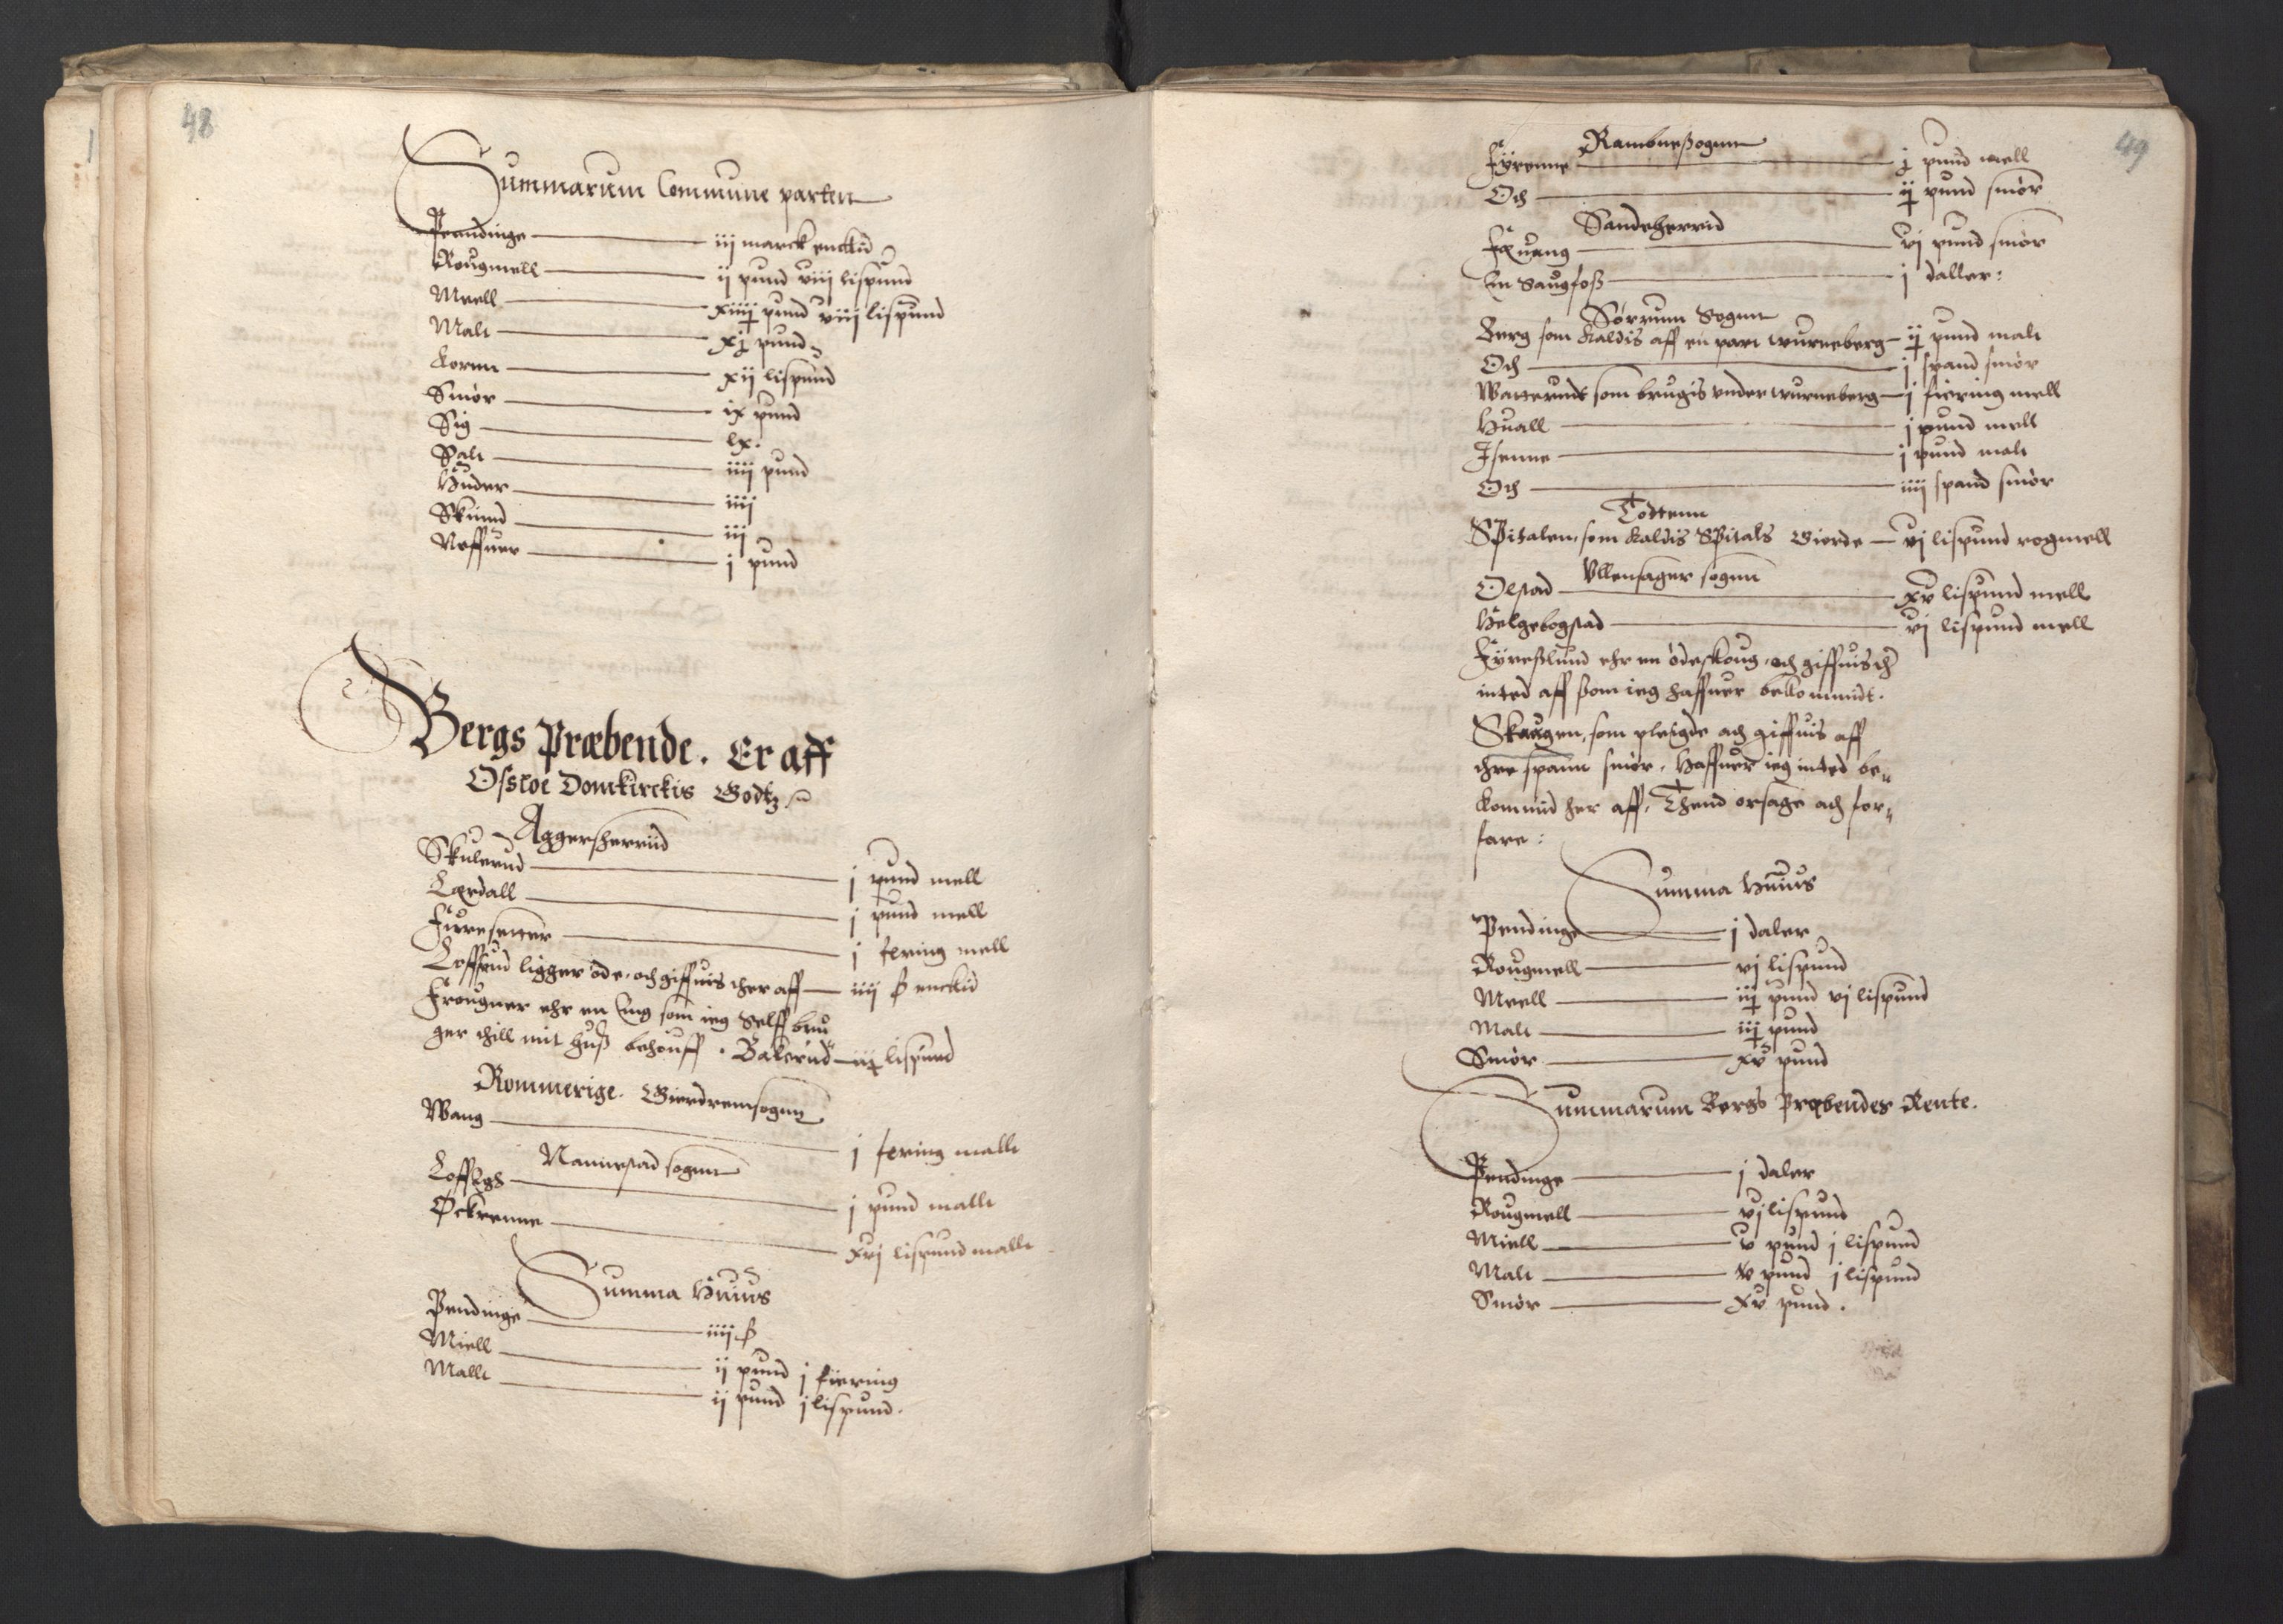 48
Summarum Commune parten
Pendinge — iij marck enckid
Rougmell — ij pund viij lispund
Meell — xiiij pund viij lispund
Malt — xj pund
Kornn — xij lispund
Smør — ix pund
Sig — lx.
Salt — iiij pund
Huder — iiij
Skiind — iij
Neffuer — j pund
Bergs Præbende. Er aff
Osloe Domkirckis Godtz
Aggersherriid
Skulerud — j pund mell
Lørdall — j pund mell
Furesetter — j fering mell
Loffud ligger øde, och giffuis ther aff — iiij ß enckid
Frougner ehr en Eng som ieg Selff bru
ger thill mit huß behouff. Bakerud — iij lispund
Rommerige. Gierdremsognn
Wang — j fering mallt
Nannestad sognn
Lofflgs — j pund mallt
Øckrenne — xvj lispund mallt
Summa Huius
Pendinge — iiij ß
Miell — ij pund j fiering
Mallt — ij pund j lispund.
49
Ramnessognn
Fyrenne — j pund mell
Och — ij pund smør
Sandeherrid
Exuang — vj pund smør
En Saugfoß — j daller:
Sørrum Sognn
Berg som kaldis aff en part wurneberg — ij pund malt
Och — j spand smør
Watterudt som brugis under wurneberg — j fiering mell
Huall — j pund mell
Isenne — j pund malt
Och — iiij spand smør
Todtenn
Spitalen, som kaldis Spitals Gierde — vj lispund rogmell
Ullensager sognn
Olstad — xv lispund mell
Helgebogstad — vj lispund mell
Fyreßlund ehr en ødeskoug, och giffuis th
inted aff ßom ieg haffuer bekommidt.
Skaugen, som pleigde och giffuis aff
thre spann smør, Haffuer ieg inted be„
kommid her aff, Thend orsage och for„
fare:
Summa Huius
Pendinge — j daler
Rougmell — vj lispund
Meell — iij pund vj lispund
Malt — iij pund
Smør — xv pund
Summarum Bergs Præbendes Rente.
Pendinge — j daler
Rougmell — vj lispund
Miell — v pund j lispund
Malt — v pund j lispund
Smør — xv pund.